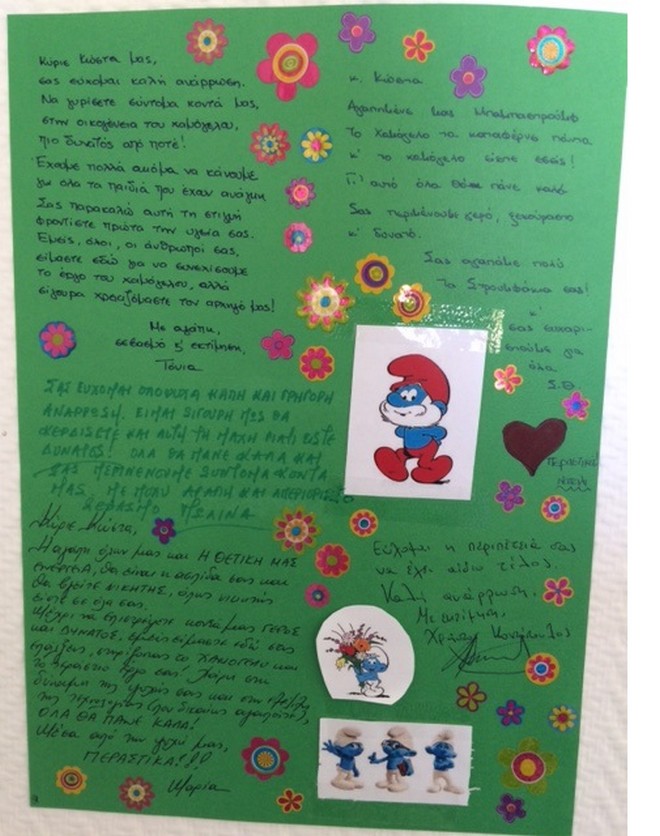 Κύριε Κώστα μας,
σας εύχομαι καλή ανάρρωση.
Να γυρίσετε σύντομα κοντά μας,
στην οικογένεια του χαμόγελου,
πιο δυνατός από ποτέ!
Έχουμε πολλά ακόμα να κάνουμε
για όλα τα παιδιά που έχουν ανάγκη
Σας παρακαλώ αυτή τη στιγμή
φροντίστε πρώτα την υγεία σας.
Εμείς, όλοι, οι άνθρωποί σας,
είμαστε εδώ για να συνεχίσουμε
το έργο του χαμόγελου, αλλά
σίγουρα χρειαζόμαστε τον αρχηγό μας!
Με αγάπη,
σεβασμό κ' εκτίμηση,
Τόνια
ΣΑΣ ΕΥΧΟΜΑΙ ΟΛΟΨΥΧΑ ΚΑΛΗ ΚΑΙ ΓΡΗΓΟΡΗ
ΑΝΑΡΡΩΣΗ. ΕΙΜΑΙ ΣΙΓΟΥΡΗ ΠΩΣ ΘΑ
ΚΕΡΔΙΣΕΤΕ ΚΑΙ ΑΥΤΗ ΤΗ ΜΑΧΗ ΓΙΑΤΙ ΕΙΣΤΕ
ΔΥΝΑΤΟΣ! ΟΛΑ ΘΑ ΠΑΝΕ ΚΑΛΑ ΚΑΙ
ΣΑΣ ΠΕΡΙΜΕΝΟΥΜΕ ΣΥΝΤΟΜΑ ΚΟΝΤΑ
ΜΑΣ. ΜΕ ΠΟΛΥ ΑΓΑΠΗ ΚΑΙ ΑΠΕΡΙΟΡΙΣΤΟ
ΣΕΒΑΣΜΟ
Κύριε Κώστα,
Η αγάπη όλων μας και Η ΘΕΤΙΚΗ ΜΑΣ
ΕΝΕΡΓΕΙΑ, θα είναι η ασπίδα σας και
θα βγείτε ΝΙΚΗΤΗΣ, όπως νικητής
είστε σε όλα σας.
Μέχρι να επιστρέψετε κοντά μας ΓΕΡΟΣ
και ΔΥΝΑΤΟΣ, εμείς είμαστε εδώ στις
επάλξεις, στηρίζοντας το ΧΑΜΟΓΕΛΟ και
το τεράστιο Έργο σας.
δύναμη της ψυχής σας και στην εξέλιξη
της τεχνολογίας
ΟΛΑ ΘΑ ΠΑΝΕ ΚΑΛΑ!
Μέσα από την ψυχή μας,
ΠΕΡΑΣΤΙΚΑ!!!
Μαρία
κ. Κώστα
Αγαπημένε μας Μπαμπαστρούμφ
Το Χαμόγελο τα καταφέρνει πάντα
κ' το χαμόγελο είστε εσείς!
Γι' αυτό όλα θα πάνε καλά
Σας περιμένουμε γερό, ξεκούραστο
κ' δυνατό.
Σας αγαπάμε πολύ
Τα Στρουμφάκια σας!
κ'
σας ευχαρι-
στούμε για
όλα
Σ.Θ.
Περαστικά!
Εύχομαι η περιπέτειά σας
να έχει αίσιο τέλος.
Καλή ανάρρωση.
Με εκτίμηση,